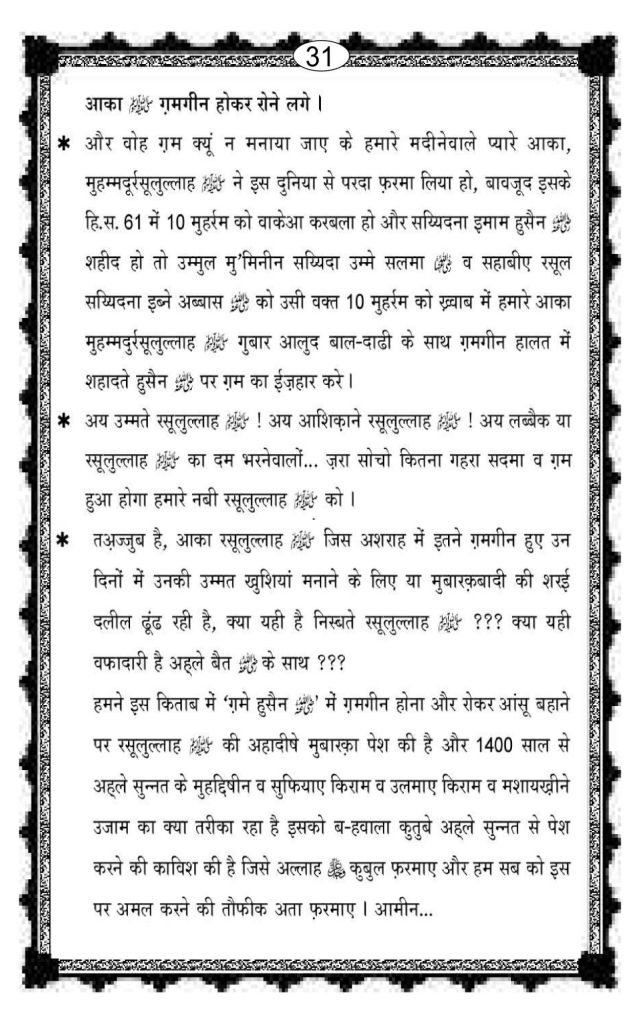 31
आका ﷺ ग़मगीन होकर रोने लगे ।
* और वोह ग़म क्यूं न मनाया जाए के हमारे मदीनेवाले प्यारे आका,
मुहम्मदुर्रसूलुल्लाह ﷺ ने इस दुनिया से परदा फ़रमा लिया हो, बावजूद इसके
हि.स. 61 में 10 मुहर्रम को वाकेआ करबला हो और सय्यिदना इमाम हुसैन
शहीद हो तो उम्मुल मु'मिनीन सय्यिदा उम्मे सलमा व सहाबीए रसूल
सय्यिदना इब्ने अब्बास को उसी वक्त 10 मुहर्रम को ख़्वाब में हमारे आका
मुहम्मदुर्रसूलुल्लाह ﷺ गुबार आलुद बाल-दाढी के साथ ग़मगीन हालत में
शहादते हुसैन पर ग़म का ईज़हार करे ।
* अय उम्मते रसूलुल्लाह ﷺ ! अय आशिक़ाने रसूलुल्लाह ﷺ ! अय लब्बैक या
रसूलुल्लाह ﷺ का दम भरनेवालों... ज़रा सोचो कितना गहरा सदमा व ग़म
हुआ होगा हमारे नबी रसूलुल्लाह ﷺ को ।
* तअज़्जुब है, आका रसूलुल्लाह ﷺ जिस अशराह में इतने ग़मगीन हुए उन
दिनों में उनकी उम्मत खुशियां मनाने के लिए या मुबारक़बादी की शरई
दलील ढूंढ रही है, क्या यही है निस्बते रसूलुल्लाह ﷺ ??? क्या यही
वफादारी है अह्ले बैत के साथ ???
हमने इस किताब में 'ग़मे हुसैन' में ग़मगीन होना और रोकर आंसू बहाने
पर रसूलुल्लाह ﷺ की अहादीषे मुबारक़ा पेश की है और 1400 साल से
अह्ले सुन्नत के मुहद्दिषीन व सुफियाए किराम व उलमाए किराम व मशायख़ीने
उजाम का क्या तरीका रहा है इसको ब-हवाला कुतुबे अह्ले सुन्नत से पेश
करने की काविश की है जिसे अल्लाह कुबुल फ़रमाए और हम सब को इस
पर अमल करने की तौफीक अता फ़रमाए । आमीन...